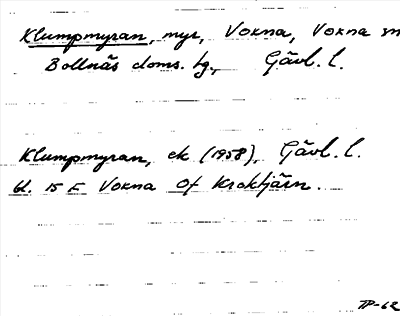 Klumpmyran, myr, Voxna, Voxna sn
Bollnäs doms. hg., Gävl. l.
Klumpmyran, ek (1958), Gävl. l.
bl. 15 F Voxna Of Kroktjärn.
TP-62